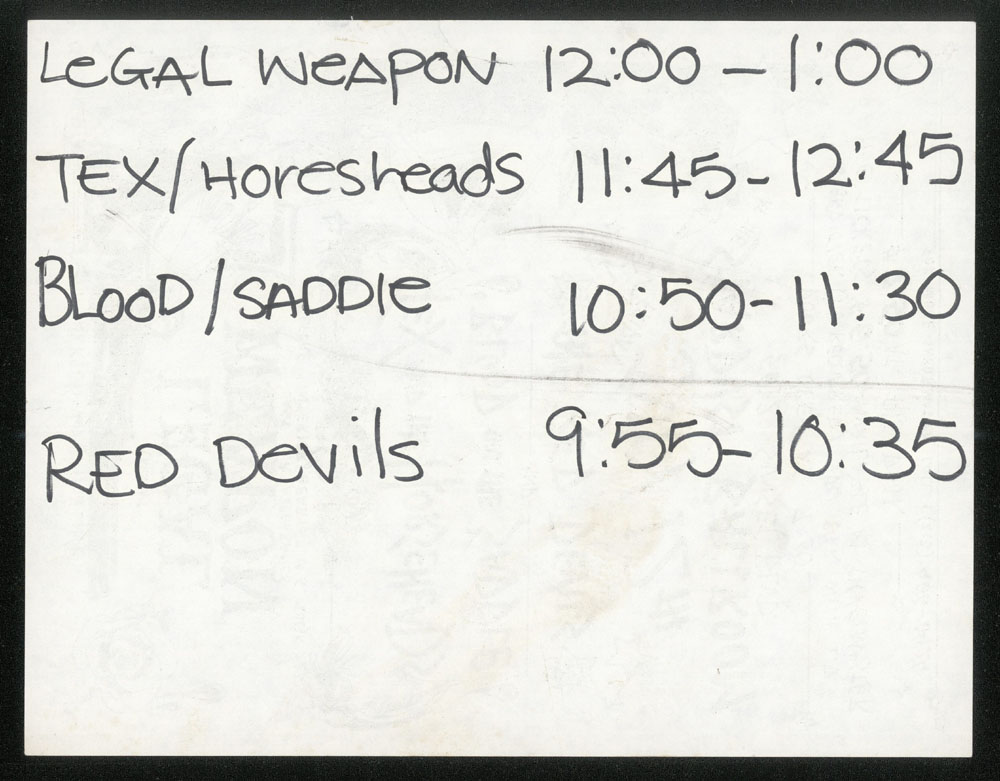 LeGAL WeAPON 12:00 – 1:00
TEX/Horesheads 11:45 - 12:45
BLOOD/SADDle 10:50 - 11:30
RED Devils 9:55 - 10:35